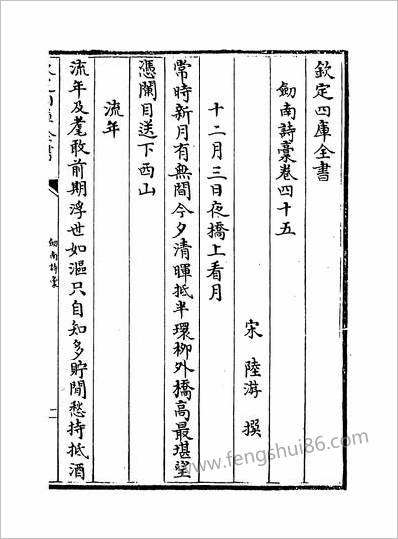 欽定四庫全書
劒南詩稾卷四十五
宋 陸游 撰
十二月三日夜橋上看月
常時新月有無間今夕清暉抵半環柳外橋高最堪望
憑闌目送下西山
流年
流年及耄敢前期浮世如漚只自知多貯閒愁持抵酒
劒南詩稾
www.fengshui86.com